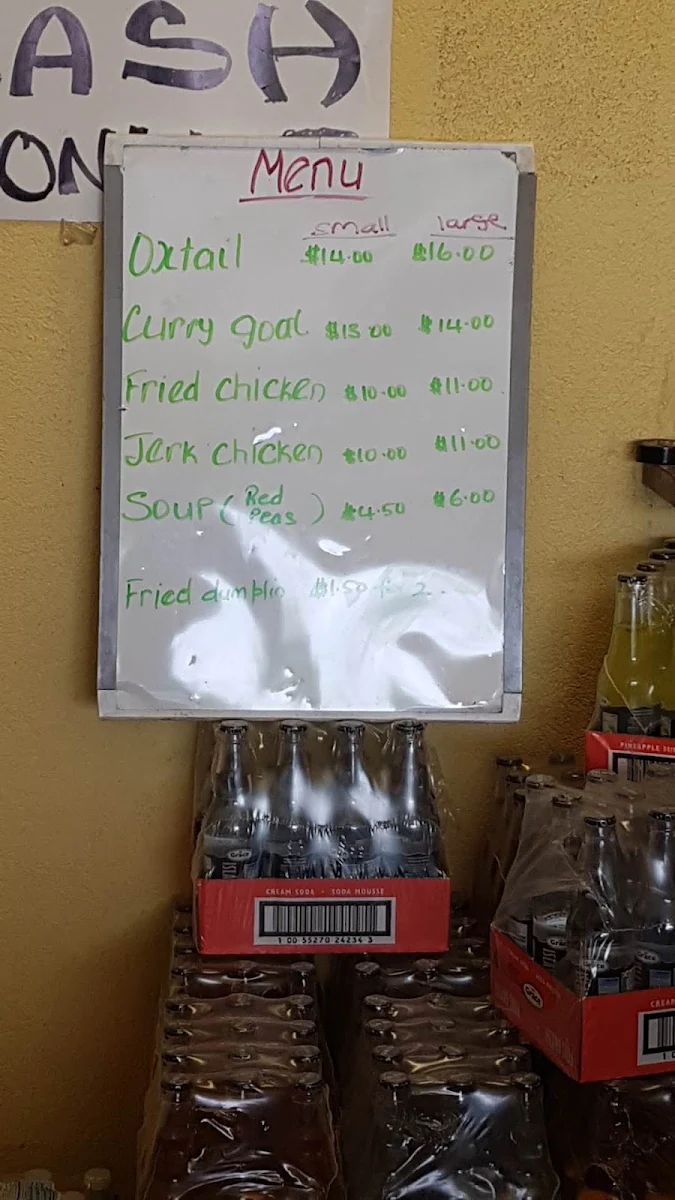 ASH
ON
Menu
small large
Oxtail $14.00 $16.00
Curry goat $13.00 $14.00
Fried chicken $10.00 $11.00
Jerk chicken $10.00 $11.00
Soup ( Red Peas ) $4.50 $6.00
Fried dumplin $1.50 for 2.
PINEAPPLE
Grace
CREAM SODA • SODA MOUSSE
1 00 55270 24234 3
Grace
Grace
CREAM